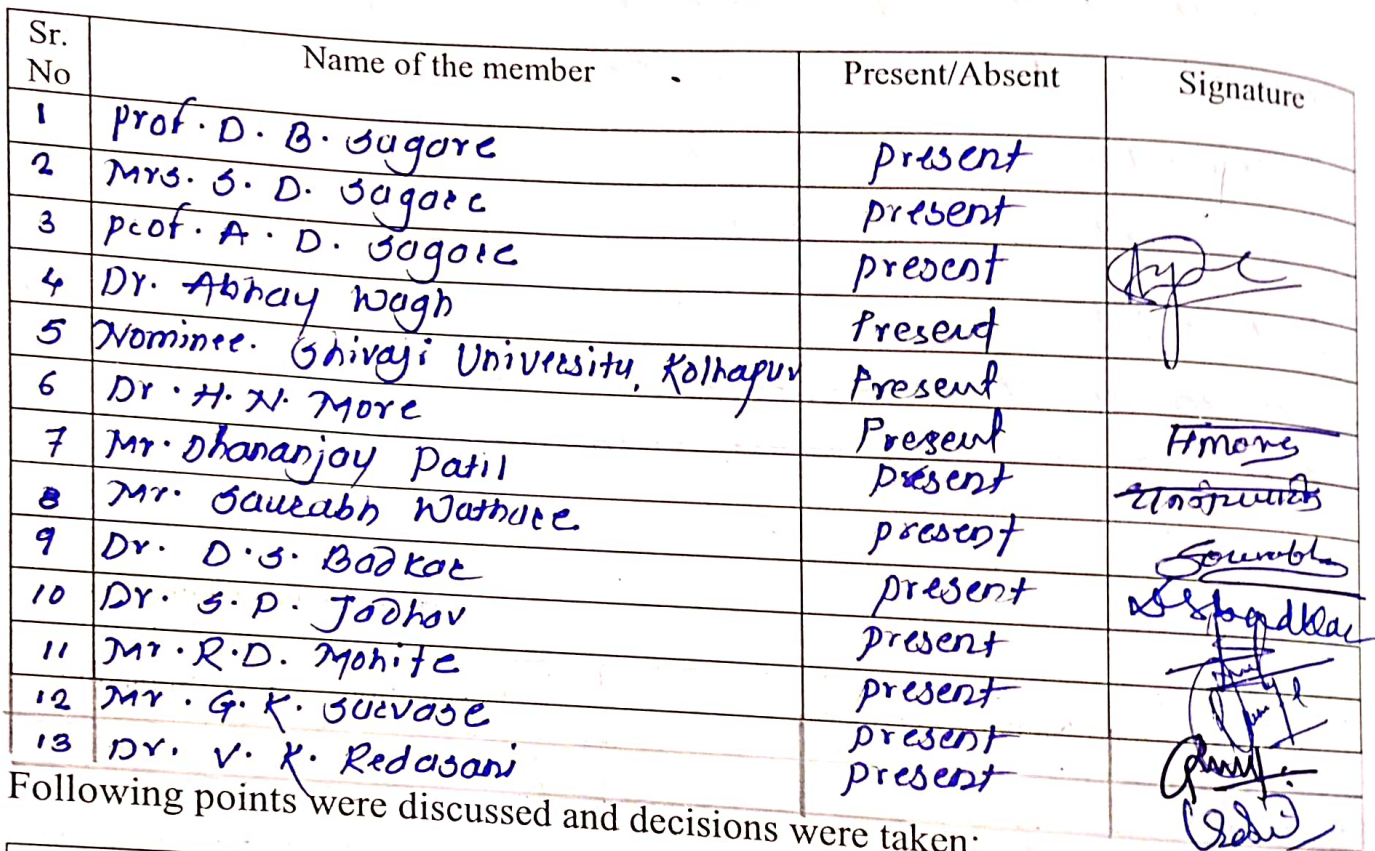 Sr. No Name of the member Present/Absent Signature
1 Prof. D. B. Sagare present
2 Mrs. S. D. Sagare present
3 Prof. A. D. Sagare present
4 Dr. Abhay Wagh Present
5 Nominee. Shivaji University, Kolhapur Present
6 Dr. H. N. More Present Hmore
7 Mr. Dhananjay Patil present
8 Mr. Saurabh Wathare present Sourabh
9 Dr. D. S. Badkar present
10 Dr. S. P. Jadhav present
11 Mr. R. D. Mohite present
12 Mr. G. K. Survase present
13 Dr. V. K. Redasani present
Following points were discussed and decisions were taken: